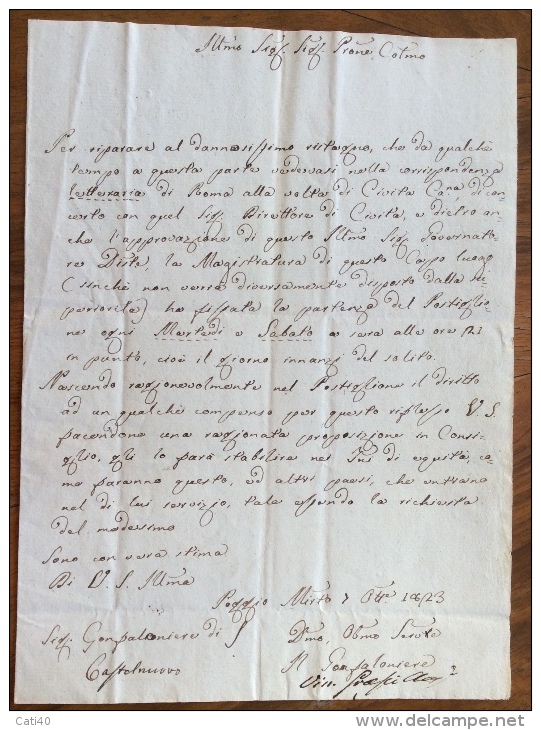 Illmo Sig.r Sig.r Prone Colmo
Per riparare al dannosissimo ristagno, che da qualche
tempo a questa parte vedevasi nella corrispondenza
letteraria di Roma alla volta di Civita Cana, di con-
certo con quel Sig.r Direttore di Civita, e dietro an-
che l'approvazione di questo Illmo Sig.r Governato-
re Dist.e, la Magistratura di questo Capo luogo
(sinchè non verrà diversamente disposto dalla su-
periorità) ha fissata la partenza del Postiglio-
ne ogni Martedì e Sabato a sera alle ore 23
in punto, cioè il giorno innanzi del solito.
Nascendo ragionevolmente nel Postiglione il diritto
ad un qualche compenso per questo riflesso V. S.
facendone una ragionata proposizione in Consi-
glio, gli lo farà stabilire nei di equità, co-
me faranno questo, ed altri paesi, che entrano
nel di lui servizio, tale essendo la richiesta
del medesimo
Sono con vera stima
Di V. S. Illma
Poggio Mirto 7 1823
Sig.r Gonfaloniere di
Castelnuovo
Dmo Obmo Serv.e
Il Gonfaloniere
Vin.
Cati40
www.delcampe.net